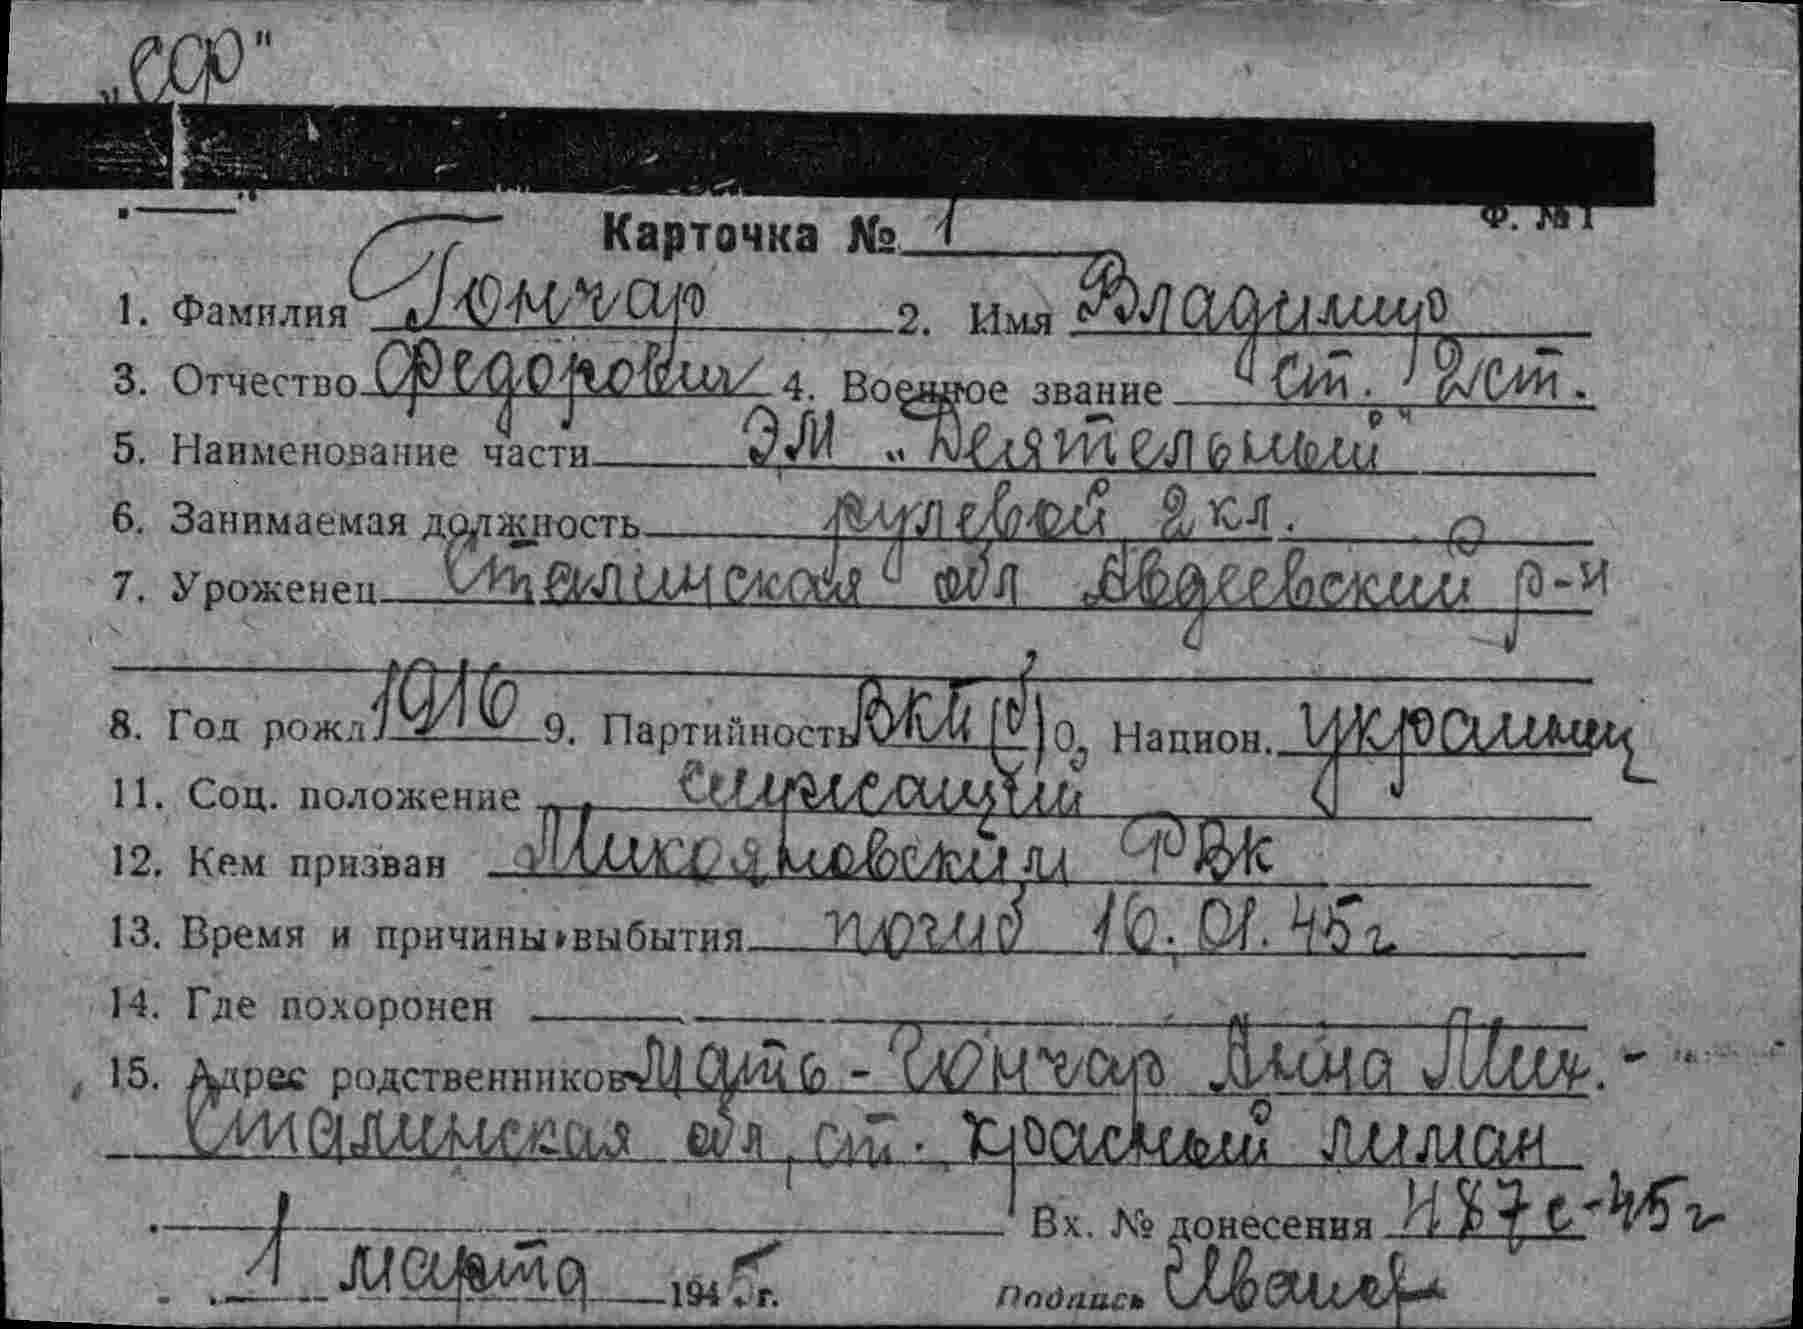 „СФ"
Ф. №1
Карточка № 1
1. Фамилия Гончар 2. Имя Владимир
3. Отчество Федорович 4. Военное звание ст. 2 ст.
5. Наименование части ЭМ „Деятельный"
6. Занимаемая должность рулевой 2 кл.
7. Уроженец Сталинская обл Авдеевский р-н
8. Год рожд. 1916 9. Партийность ВКП(б) 10. Национ. украинец
11. Соц. положение служащий
12. Кем призван Микояновским РВК
13. Время и причины выбытия погиб 16.01.45г
14. Где похоронен
15. Адрес родственников Мать - Гончар Анна Мих. -
Сталинская обл, ст. Красный лиман
Вх. № донесения 487с-45г
1 марта 1945 г. Подпись